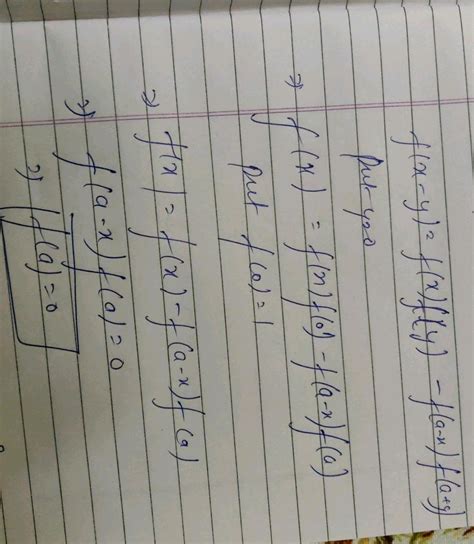 f(x-y) = f(x) f(y) - f(a-x) f(a+y)
put y=0
⇒ f(x) = f(x) f(0) - f(a-x) f(a)
put f(0) = 1
⇒ f(x) = f(x) - f(a-x) f(a)
⇒ f(a-x) f(a) = 0
⇒ f(a) = 0